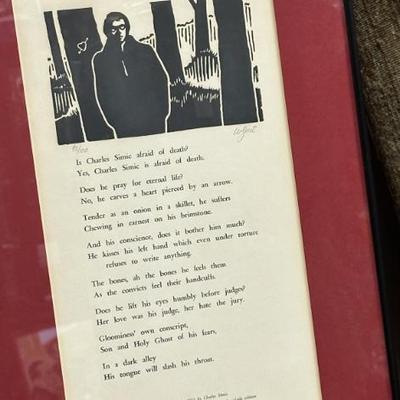 Is Charles Simic afraid of death?
Yes, Charles Simic is afraid of death.
Does he pray for eternal life?
No, he carves a heart pierced by an arrow.
Tender as an onion in a skillet, he suffers
Chewing in earnest on his brimstone.
And his conscience, does it bother him much?
He kisses his left hand which even under torture
refuses to write anything.
The bones, ah the bones he feels them
As the convicts feel their handcuffs.
Does he lift his eyes humbly before judges?
Her love was his judge, her hate the jury.
Gloominess' own conscript,
Son and Holy Ghost of his fears,
In a dark alley
His tongue will slash his throat.
by Charles Simic